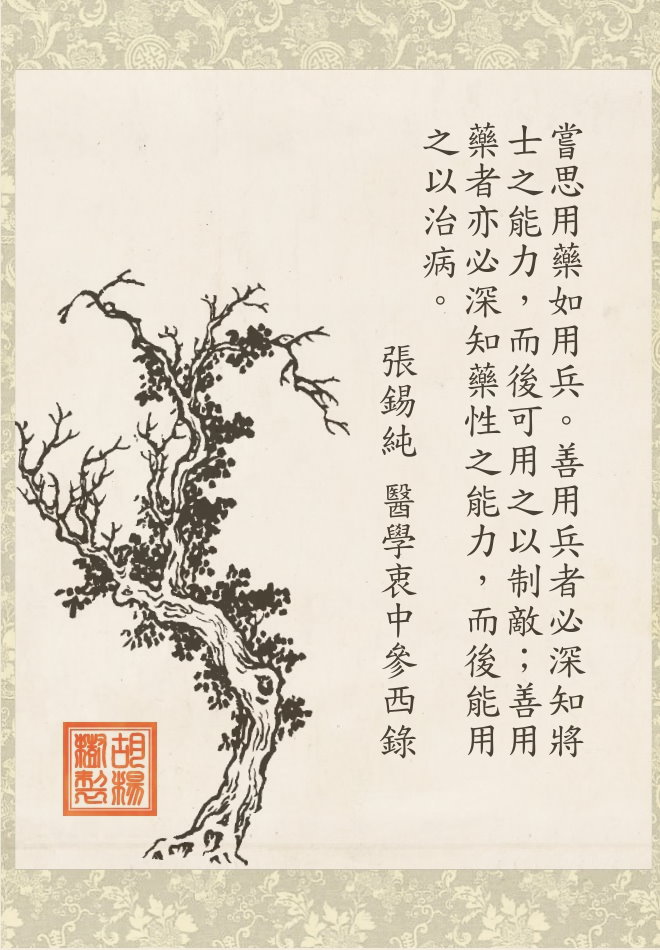 嘗思用藥如用兵。善用兵者必深知將
士之能力，而後可用之以制敵；善用
藥者亦必深知藥性之能力，而後能用
之以治病。
張錫純 醫學衷中參西錄